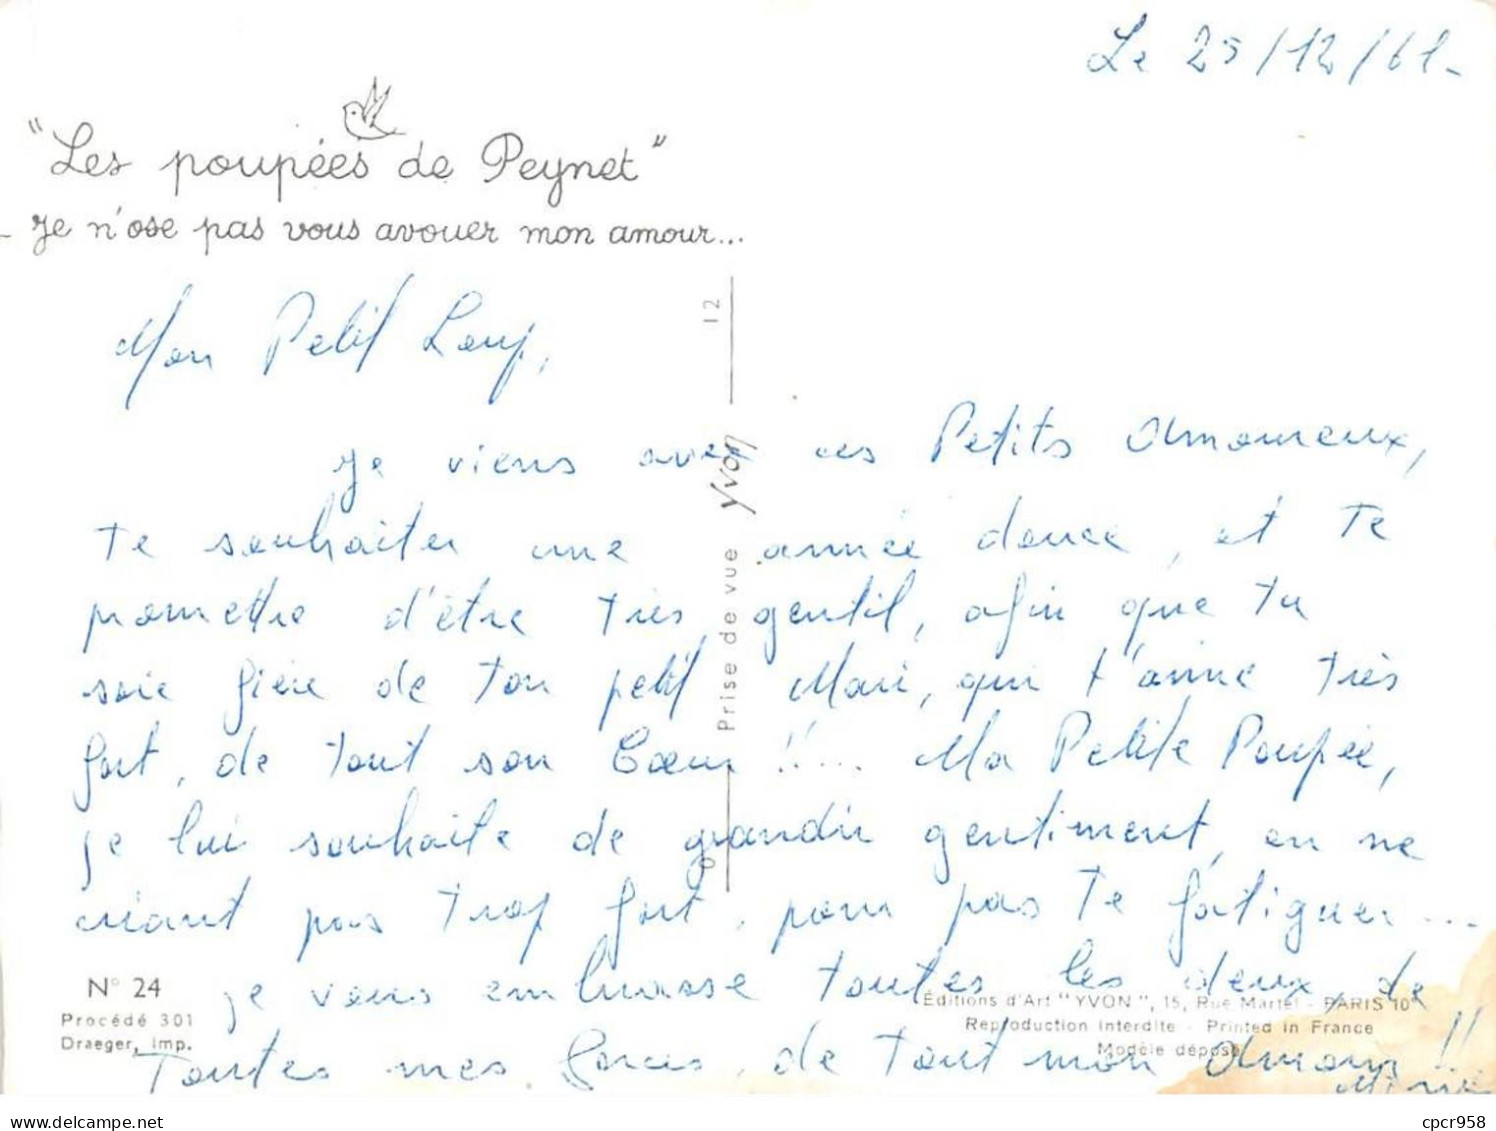 Le 25/12/61-
"Les poupées de Peynet"
- Je n'ose pas vous avouer mon amour...
Mon Petit Loup,
Je viens avec ces Petits Amoureux,
te souhaiter une année douce, et te
promettre d'être très gentil, afin que tu
soie fière de ton petit Mari, qui t'aime très
fort, de tout son Cœur !!... Ma Petite Poupée,
je lui souhaite de grandir gentiment, en ne
criant pas trop fort, pour pas te fatiguer...
je vous embrasse toutes les deux, de
toutes mes forces, de tout mon Amour !!
12
Prise de vue Yvon
N° 24
Procédé 301
Draeger, imp.
Éditions d'Art "YVON", 15, Rue Martel - PARIS 10e
Reproduction interdite - Printed in France
Modèle déposé
cpcr958